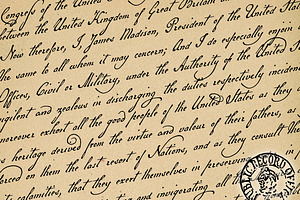 Congress of the United States
between the United Kingdom of Great Britain
Now therefore, I, James Madison, President of the United States
the same to all whom it may concern; And I do especially enjoin
Officers, Civil or Military, under the Authority of the United
vigilant and zealous in discharging the duties respectively incident
moreover exhort all the good people of the United States as they
heritage derived from the virtue and valour of their fathers, as
forced on them the last resort of Nations, and as they consult
calamities, that they exert themselves in preserving
and invigorating all